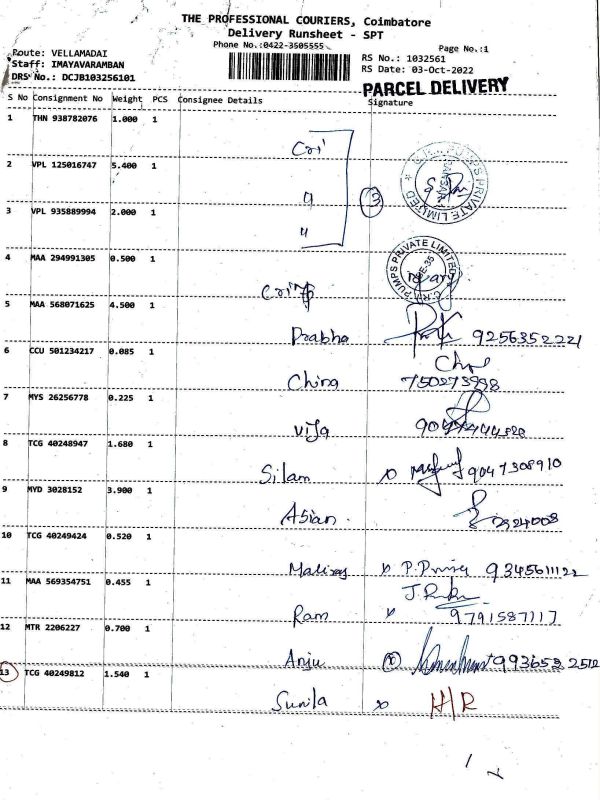 THE PROFESSIONAL COURIERS, Coimbatore
Delivery Runsheet - SPT
Phone No.:0422-3505555
Page No.:1
Route: VELLAMADAI
RS No.: 1032561
Staff: IMAYAVARAMBAN
RS Date: 03-Oct-2022
DRS No.: DCJB103256101
PARCEL DELIVERY
S No Consignment No Weight PCS Consignee Details Signature
1 THN 938782076 1.000 1
Cri
2 VPL 125016747 5.400 1
3
3 VPL 935889994 2.000 1
PUMPS PRIVATE LIMITED
4 MAA 294991305 0.500 1
C.R.I. PUMPS PRIVATE LIMITED
5 MAA 568071625 4.500 1
Prabha 9256352221
6 CCU 501234217 0.085 1
China
7 MYS 26256778 0.225 1
Vija
8 TCG 40248947 1.680 1
Silam 9047308910
9 MYD 3028152 3.900 1
Asian
10 TCG 40249424 0.520 1
P. Priya 9345611122
11 MAA 569354751 0.455 1
Ram 9791587117
12 MTR 2206227 0.700 1
Anju 9936532512
13 TCG 40249812 1.540 1
Sunila H/R